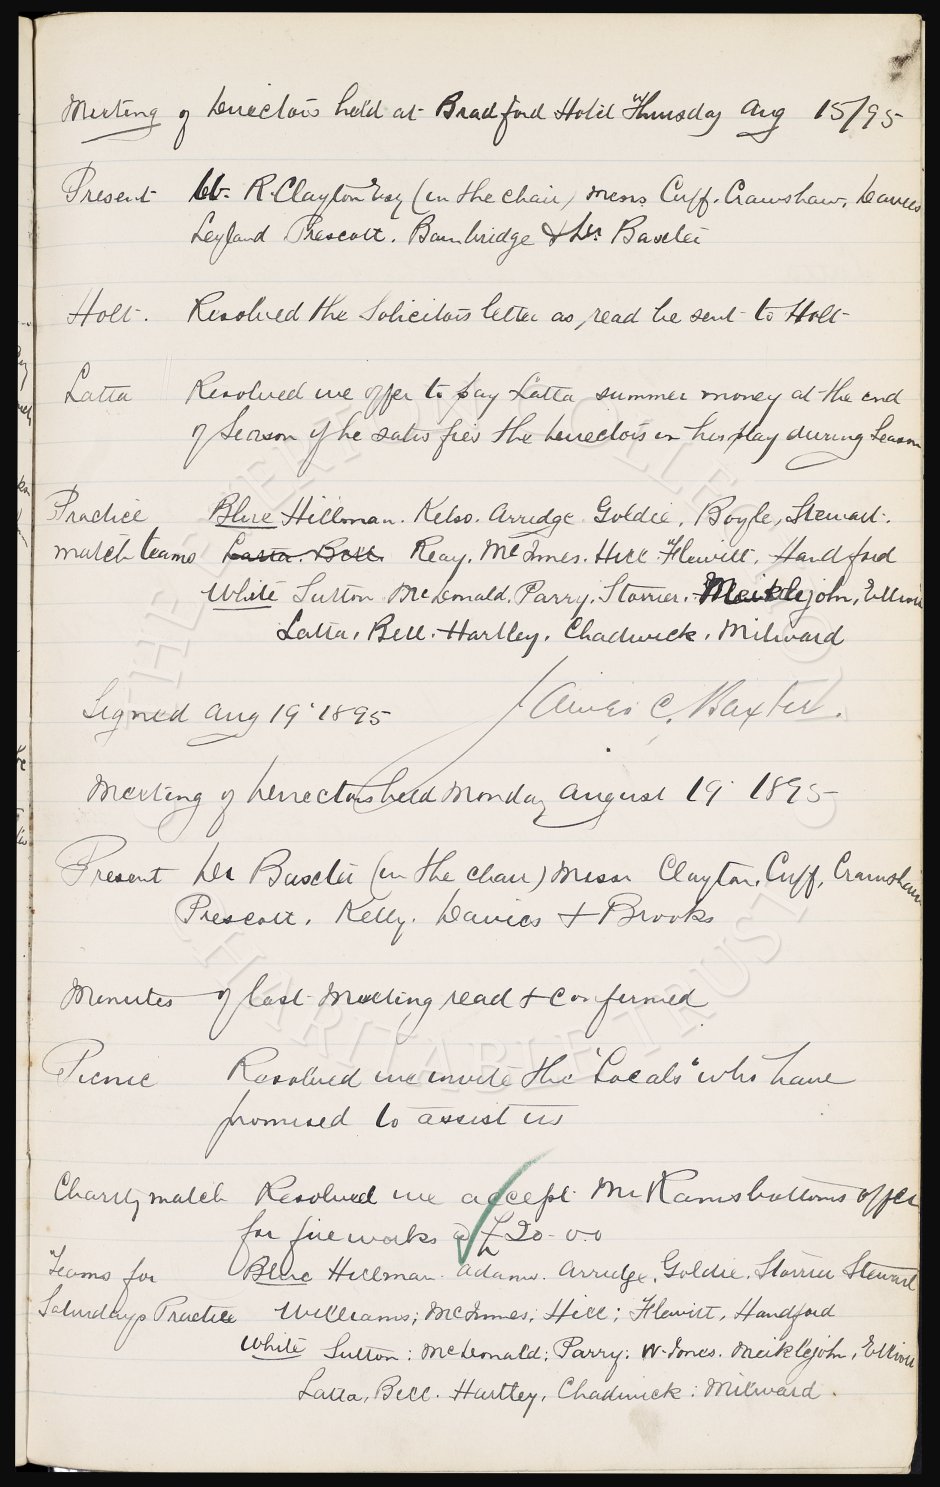 Meeting of Directors held at Bradford Hotel Thursday Aug 15/95
Present W. R. Clayton Esq (in the chair) Messrs Cuff. Crawshaw. Davies
Leyland Prescott. Bainbridge & Dr. Baxter
Holt. Resolved the Solicitors letter as read be sent to Holt
Latta Resolved we offer to pay Latta summer money at the end
of Season if he satisfies the Directors in his play during Season
Practice Blue Hillman. Kelso. Arridge Goldie, Boyle, Stewart.
match teams Latta. Bell. Reay. McInnes. Hill Flewitt. Handford
White Sutton McDonald. Parry. Storrier. Meiklejohn, Elliott
Latta, Bell. Hartley. Chadwick. Milward
Signed Aug 19' 1895 James C. Baxter.
Meeting of Directors held Monday August 19 1895
Present Dr Baxter (in the chair) Messrs Clayton, Cuff, Crawshaw
Prescott. Kelly. Davies & Brooks
Minutes of last Meeting read & confirmed
Picnic Resolved we invite the "Locals" who have
promised to assist us
Charity match Resolved we accept Mr Ramsbottoms offer
for fireworks @ £20-0.0
Teams for Blue Hillman. Adams. Arridge, Goldie. Storrier Stewart
Saturdays Practice Williams; McInnes; Hill; Flewitt, Handford
White Sutton: McDonald; Parry; W. Jones. Meiklejohn, Elliott
Latta, Bell. Hartley, Chadwick: Milward.
THE EVERTON COLLECTION
CHARITABLE TRUST